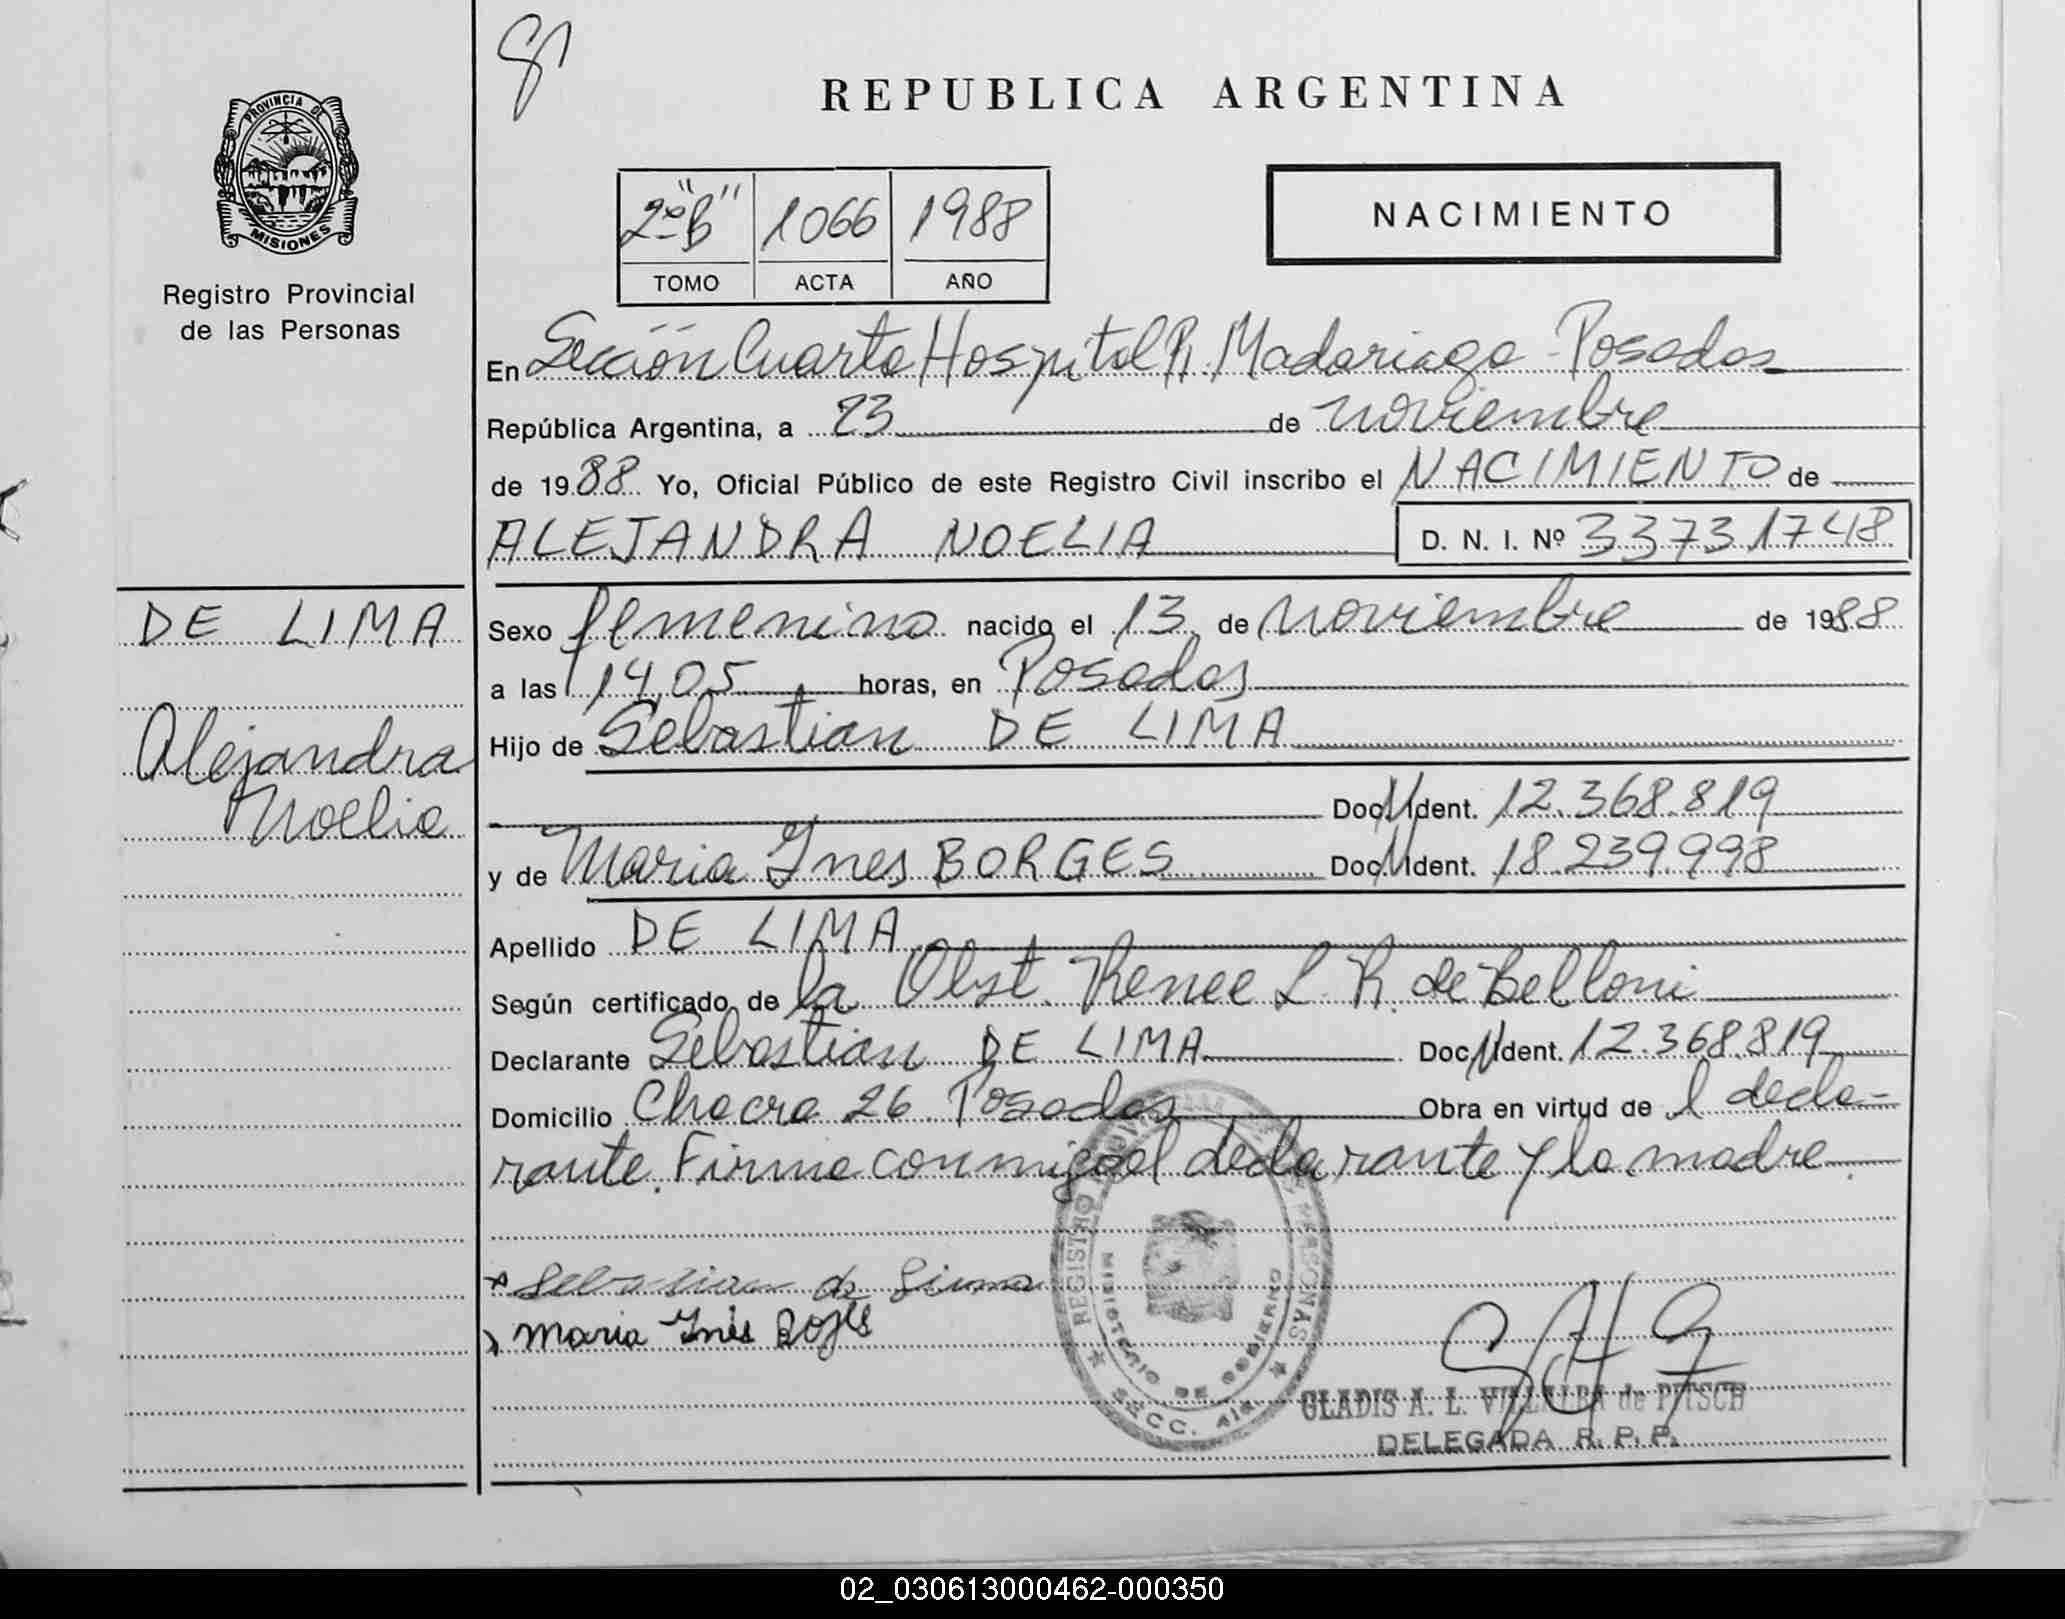 REPUBLICA ARGENTINA
PROVINCIA DE
MISIONES
Registro Provincial
de las Personas
2º "B" 1066 1988
TOMO ACTA AÑO
NACIMIENTO
En Sección Cuarta Hospital R. Madariaga - Posadas
República Argentina, a 23 de noviembre
de 1988 Yo, Oficial Público de este Registro Civil inscribo el NACIMIENTO de
ALEJANDRA NOELIA D. N. I. Nº 33731748
DE LIMA
Alejandra
Noelia
Sexo femenino nacido el 13 de noviembre de 1988
a las 14,05 horas, en Posadas
Hijo de Sebastian DE LIMA
Doc. Ident. 12.368.819
y de Maria Ines BORGES Doc. Ident. 18.239.998
Apellido DE LIMA
Según certificado de la Obst. Renee L. R. de Belloni
Declarante Sebastian DE LIMA Doc. Ident. 12.368.819
Domicilio Chacra 26 Posadas Obra en virtud de l decla-
rante. Firma conmigo el declarante y la madre.
Sebastian de Lima
Maria Inés
REGISTRO PERSONAS
MINISTERIO DE GOBIERNO
SECC. 4ta.
GLADIS A. L. VILLALBA de PITSCH
DELEGADA R. P. P.
02_030613000462-000350